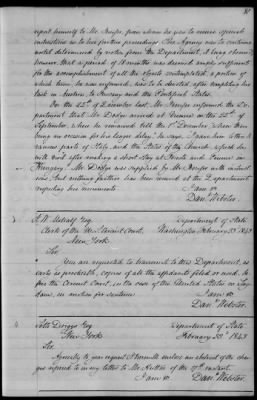 report himself to Mr. Jenifer, from whom he was to receive special
instructions as to his further proceedings. The Agency was to continue
until determined by notice from the Department, it being observed
however that a period of 18 months was deemed amply sufficient
for the accomplishment of all the objects contemplated, a portion of
which time, he was informed, was to be devoted, after completing his
task in Austria, to Prussia and the Pontifical States.
On the 22d of December last Mr. Jenifer informed the De-
partment that Mr. Dodge arrived at Vienna on the 25th of
September, where he remained till the 1st December, when there
being no occasion for his longer delay, he says, I gave him letters to
various parts of Italy and the States of the Church, whence he
will visit after making a short stay at Pesth and
Hungary. Mr. Dodge was supplied by Mr. Jenifer with instruct-
ions, but nothing further has been received at the Department
respecting his movements.
I am &c
Danl. Webster.
Esq. Department of State
Clerk of the U.S. Circuit Court, Washington February 23d 1843
New York
Sir
You are requested to transmit to this Department, as
early as practicable, copies of all the affidavits filed or used, be-
fore the Circuit Court, in the case of the United States vs.
on motion for
I am &c
Danl. Webster.
Esq Department of State
New York February 23d 1843
Sir.
Agreeably to your request I transmit enclosed an abstract of the char-
ges referred to in my letter to Mr. of the 17th instant.
I am &c Danl. Webster